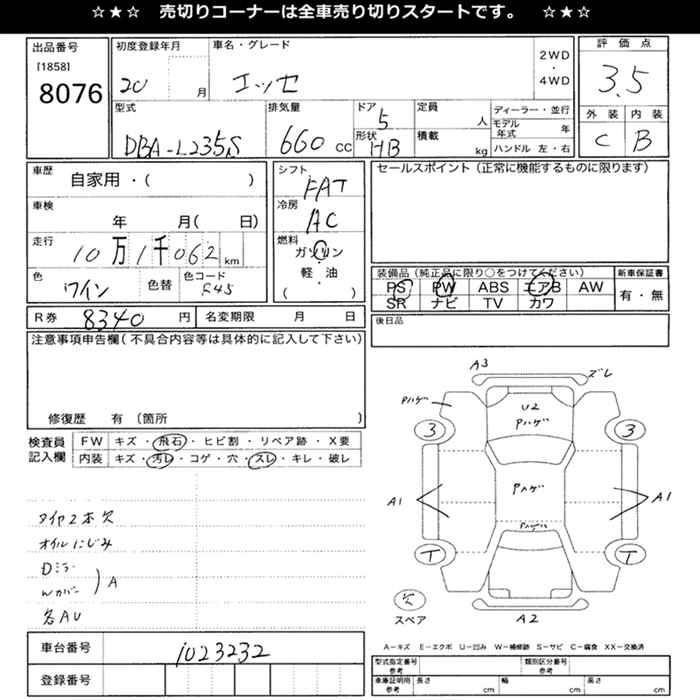 ☆★☆ 売切りコーナーは全車売り切りスタートです。 ☆★☆
出品番号
[1858]
8076
初度登録年月
20 月
車名・グレード
エッセ
2WD
・
4WD
評価点
3.5
外装 内装
C B
型式
DBA-L235S
排気量
660 CC
ドア
5
形状
HB
定員
人
積載
kg
ディーラー・並行
モデル年式 年
ハンドル 左・右
車歴
自家用・( )
車検
年 月( 日)
走行
10万1千062km
色
ワイン
色替
色コード
R45
シフト
FAT
冷房
AC
燃料
ガソリン
・
軽・油
( )
セールスポイント (正常に機能するものに限ります)
装備品 (純正品に限り○をつけてください)
PS PW ABS エアB AW
SR ナビ TV カワ
新車保証書
有・無
R券 8340 円
名変期限 月 日
後日品
注意事項申告欄 (不具合内容等は具体的に記入して下さい)
修復歴 有 〔箇所 〕
検査員
記入欄
FW キズ・飛石・ヒビ割・リペア跡・X要
内装 キズ・汚レ・コゲ・穴・スレ・キレ・破レ
タイヤ2本欠
オイルにじみ
Dミラー
Wカバー
)A
各AU
A3
ズレ
Pハゲ
U2
Pハゲ
3
3
A1
Pハゲ
A1
Pハゲ
T
T
欠
スペア
A2
車台番号
1023232
登録番号
A-キズ E-エクボ U-凹み W-補修跡 S-サビ C-腐食 XX-交換済
型式指定番号
参考
類別区分番号
参考
車庫証明用
参考
長さ cm
幅 cm
高さ cm